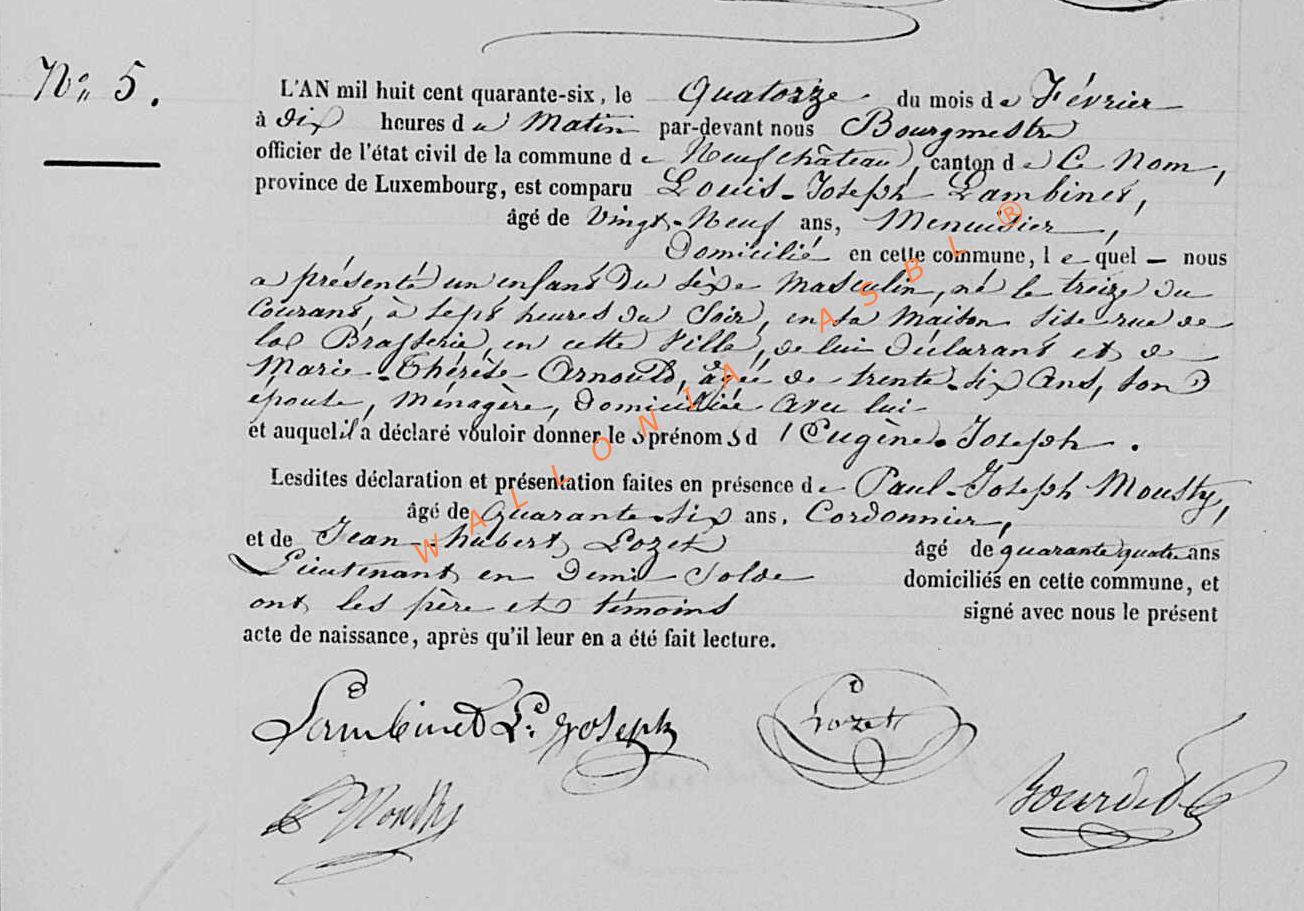 N° 5.
L'AN mil huit cent quarante-six, le Quatorze du mois de Février
à dix heures du Matin par-devant nous Bourgmestre
officier de l'état civil de la commune de Neufchâteau, canton de Ce Nom,
province de Luxembourg, est comparu Louis-Joseph Lambinet,
âgé de Vingt-Neuf ans, Menuisier,
Domicilié en cette commune, lequel – nous
a présenté un enfant du sèxe masculin, né le treize du
courant, à sept heures du soir, en sa maison sise rue de
la Brasserie, en cette Ville, de lui Déclarant et de
Marie-Thérèse Arnould, âgée de trente-six ans, son
épouse, Ménagère, domiciliée avec lui
et auquel il a déclaré vouloir donner les prénoms d'Eugène-Joseph.
Lesdites déclaration et présentation faites en présence de Paul-Joseph Mousty,
âgé de quarante-six ans, Cordonnier,
et de Jean-hubert Lozet âgé de quarante quatre ans
Lieutenant en demi-solde domiciliés en cette commune, et
ont les père et témoins signé avec nous le présent
acte de naissance, après qu'il leur en a été fait lecture.
Lambinet L. Joseph Lozet
Mousty Bourdet
WALLONIA ASBL ®